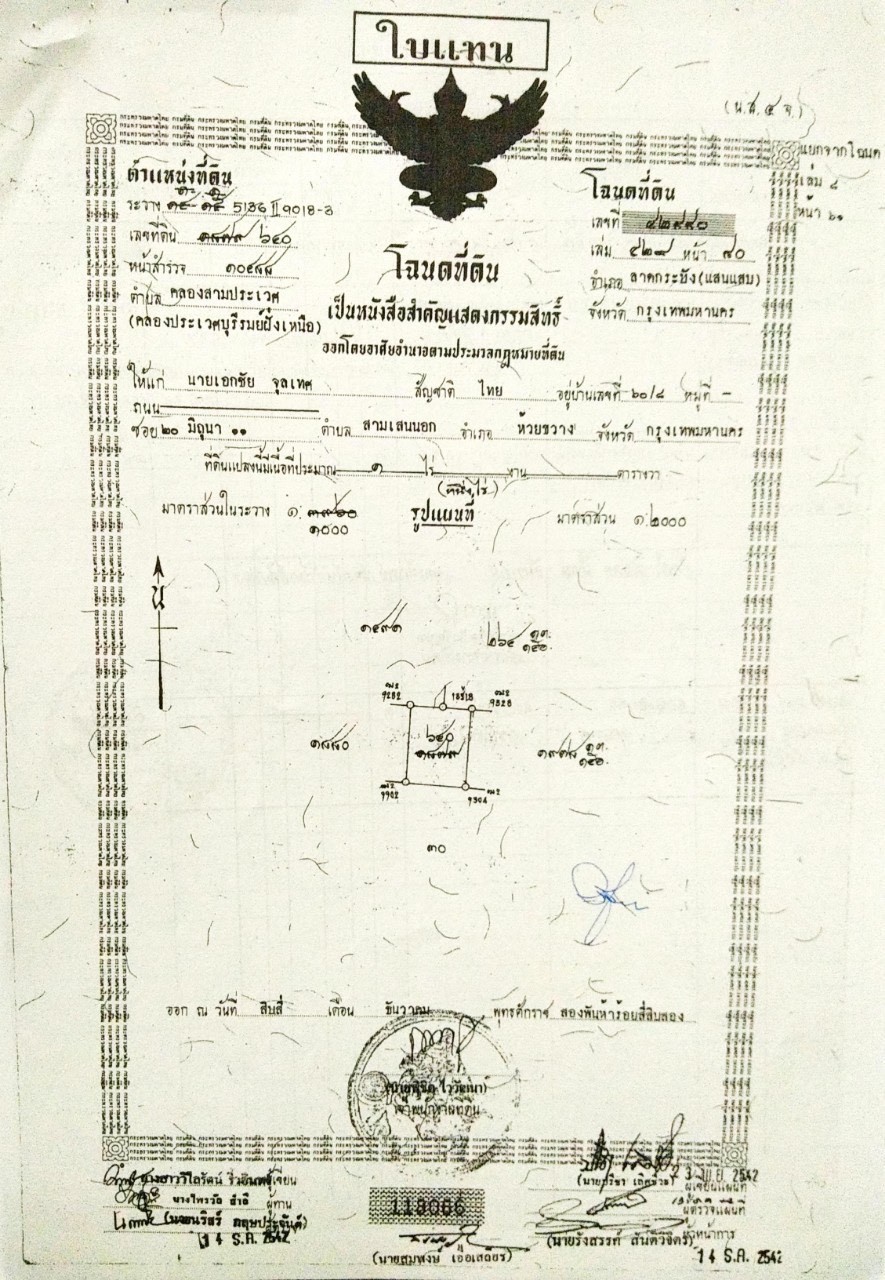 ใบแทน
(น.ส.๔ จ.)
แยกจากโฉนด
เล่ม ๘
หน้า ๖๑
ตำแหน่งที่ดิน
ระวาง 5136 II 9018-3
เลขที่ดิน ๑๘๗๙ ๖๔๐
หน้าสำรวจ ๑๐๕๘๘
ตำบล คลองสามประเวศ
(คลองประเวศบุรีรมย์ฝั่งเหนือ)
โฉนดที่ดิน
เลขที่ ๔๒๙๙๐
เล่ม ๔๒๘ หน้า ๙๐
อำเภอ ลาดกระบัง(แสนแสบ)
จังหวัด กรุงเทพมหานคร
โฉนดที่ดิน
เป็นหนังสือสำคัญแสดงกรรมสิทธิ์
ออกโดยอาศัยอำนาจตามประมวลกฎหมายที่ดิน
ให้แก่ นายเอกชัย จุลเทศ สัญชาติ ไทย อยู่บ้านเลขที่ ๖๐/๘ หมู่ที่ -
ถนน
ซอย ๒๐ มิถุนา ๑๑ ตำบล สามเสนนอก อำเภอ ห้วยขวาง จังหวัด กรุงเทพมหานคร
ที่ดินแปลงนี้มีเนื้อที่ประมาณ ๑ ไร่ งาน ตารางวา
(หนึ่งไร่)
มาตราส่วนในระวาง ๑: ๑๐๐๐
รูปแผนที่
มาตราส่วน ๑:๒๐๐๐
น
๖๔๐
๑๘๗๙
๑๘๘๐
๓๐
ออก ณ วันที่ สิบสี่ เดือน ธันวาคม พุทธศักราช สองพันห้าร้อยสี่สิบสอง
เจ้าพนักงานที่ดิน
ผู้เขียน
ผู้ทาน
14 ธ.ค. 2542
113006
(นายสมพงษ์ เอื้อเสถียร)
2542
ผู้เขียนแผนที่
ผู้ตรวจแผนที่
(นายรังสรรค์ สันติวิจิตร)
หัวหน้าการ
14 ธ.ค. 2542